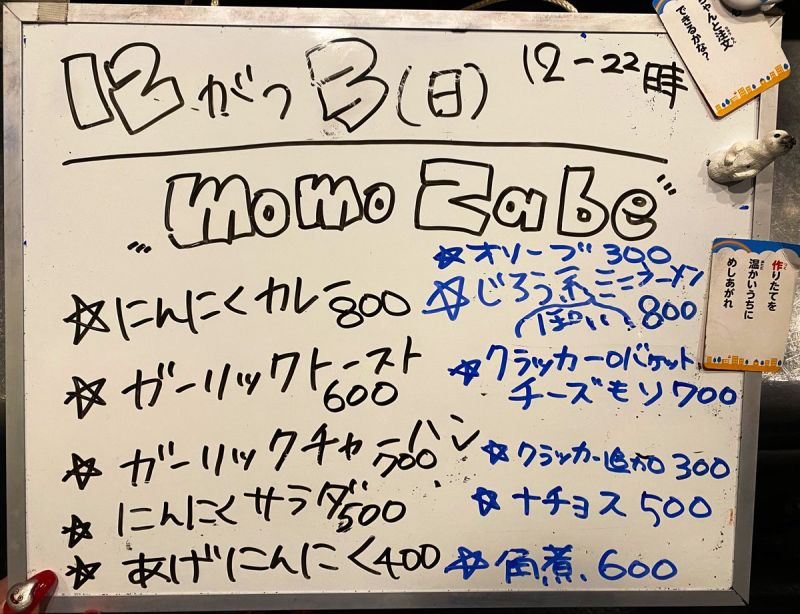 12がつ3(日) 12-22時
"momo Zabe"
☆にんにくカレー800
☆ガーリックトースト
600
☆ガーリックチャーハン
700
☆にんにくサラダ500
☆あげにんにく400
☆オリーブ300
☆じろう系ミニラーメン
(ぽい)800
☆クラッカーorバケット
チーズもり700
☆クラッカー追加300
☆ナチョス500
☆角煮.600
ちゃんと注文
できるかな?
作りたてを
温かいうちに
めしあがれ